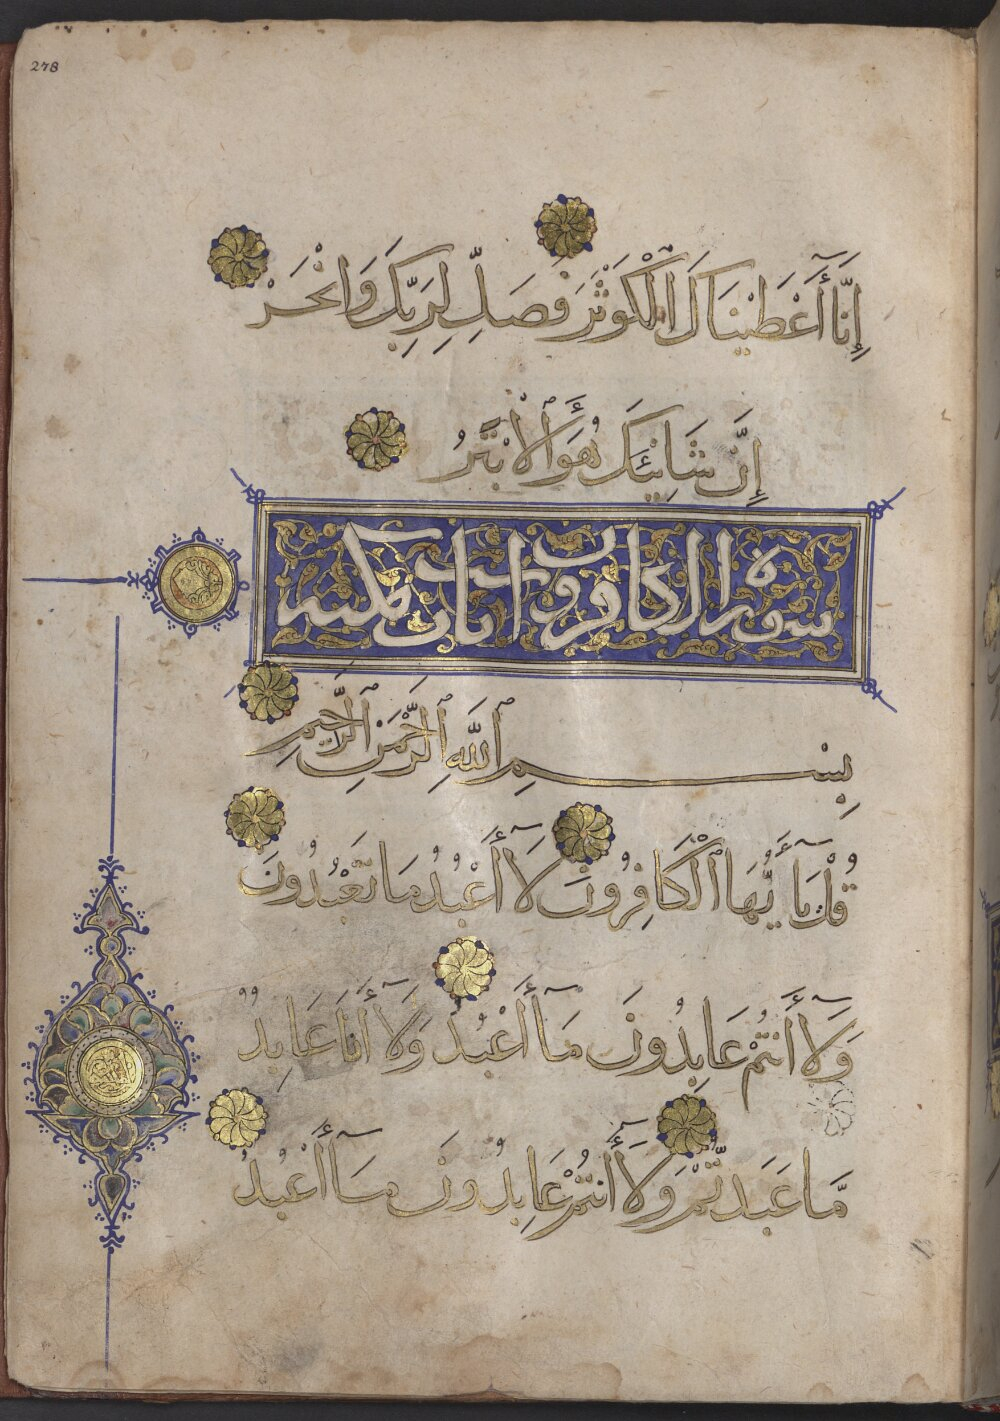 278
إِنَّا أَعْطَيْنَاكَ ٱلْكَوْثَرَ فَصَلِّ لِرَبِّكَ وَٱنْحَرْ
إِنَّ شَانِئَكَ هُوَ ٱلْأَبْتَرُ
سورة الكافرون ست ايات مكية
بِسْمِ ٱللَّهِ ٱلرَّحْمَٰنِ ٱلرَّحِيمِ
قُلْ يَآ أَيُّهَا ٱلْكَافِرُونَ لَآ أَعْبُدُ مَا تَعْبُدُونَ
وَلَآ أَنتُمْ عَابِدُونَ مَآ أَعْبُدُ وَلَآ أَنَا عَابِدٌ
مَّا عَبَدتُّمْ وَلَآ أَنتُمْ عَابِدُونَ مَآ أَعْبُدُ